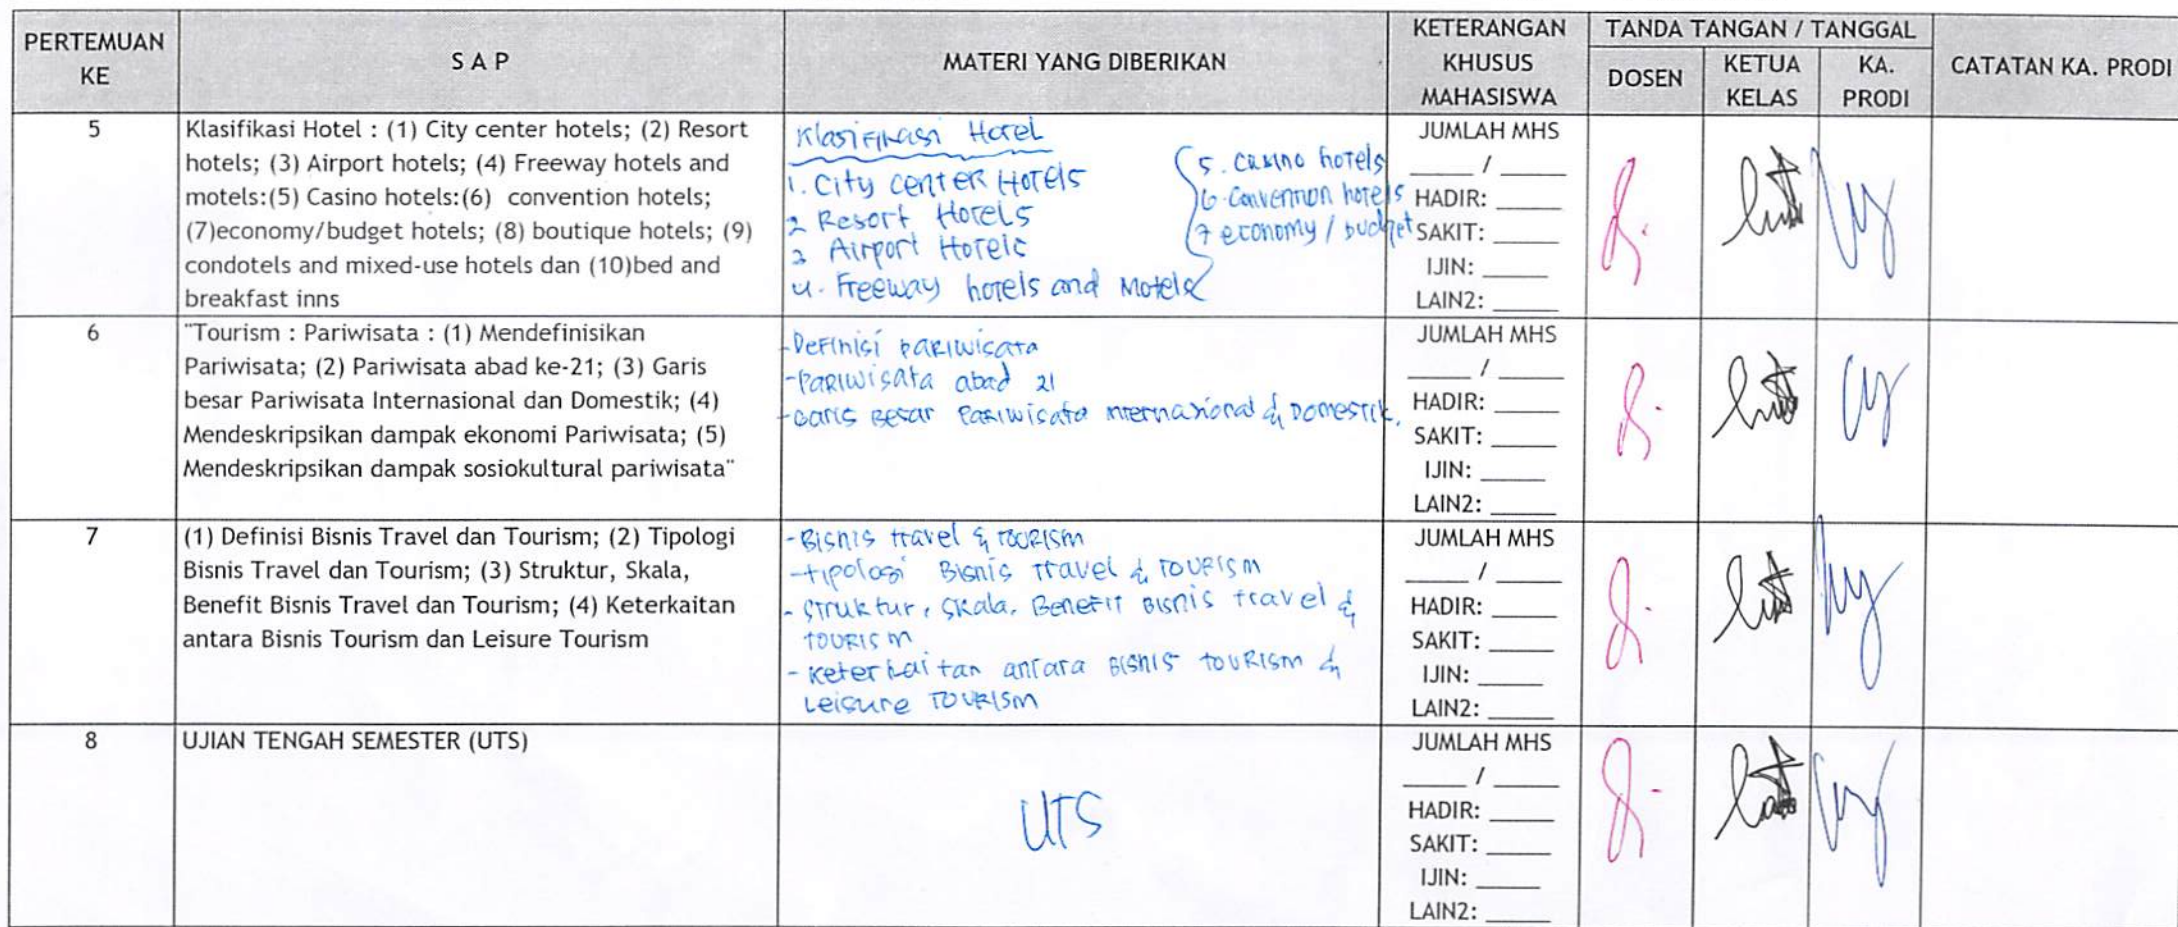 PERTEMUAN KE
S A P
MATERI YANG DIBERIKAN
KETERANGAN KHUSUS MAHASISWA
TANDA TANGAN / TANGGAL
DOSEN
KETUA KELAS
KA. PRODI
CATATAN KA. PRODI
5
Klasifikasi Hotel : (1) City center hotels; (2) Resort
hotels; (3) Airport hotels; (4) Freeway hotels and
motels:(5) Casino hotels:(6) convention hotels;
(7)economy/budget hotels; (8) boutique hotels; (9)
condotels and mixed-use hotels dan (10)bed and
breakfast inns
Klasifikasi Hotel
1. City center Hotels
2 Resort Hotels
3 Airport Hotels
4. Freeway hotels and Motels
5. Casino hotels
6. Convention hotels
7 economy / budget
JUMLAH MHS
____ / ____
HADIR: ____
SAKIT: ____
IJIN: ____
LAIN2: ____
6
"Tourism : Pariwisata : (1) Mendefinisikan
Pariwisata; (2) Pariwisata abad ke-21; (3) Garis
besar Pariwisata Internasional dan Domestik; (4)
Mendeskripsikan dampak ekonomi Pariwisata; (5)
Mendeskripsikan dampak sosiokultural pariwisata"
-Definisi pariwisata
-Pariwisata abad 21
-Garis Besar Pariwisata Internasional & Domestik.
JUMLAH MHS
____ / ____
HADIR: ____
SAKIT: ____
IJIN: ____
LAIN2: ____
7
(1) Definisi Bisnis Travel dan Tourism; (2) Tipologi
Bisnis Travel dan Tourism; (3) Struktur, Skala,
Benefit Bisnis Travel dan Tourism; (4) Keterkaitan
antara Bisnis Tourism dan Leisure Tourism
- Bisnis travel & tourism
- tipologi Bisnis travel & tourism
- struktur, skala, Benefit Bisnis travel &
tourism
- keterkaitan antara Bisnis tourism &
Leisure Tourism
JUMLAH MHS
____ / ____
HADIR: ____
SAKIT: ____
IJIN: ____
LAIN2: ____
8
UJIAN TENGAH SEMESTER (UTS)
UTS
JUMLAH MHS
____ / ____
HADIR: ____
SAKIT: ____
IJIN: ____
LAIN2: ____